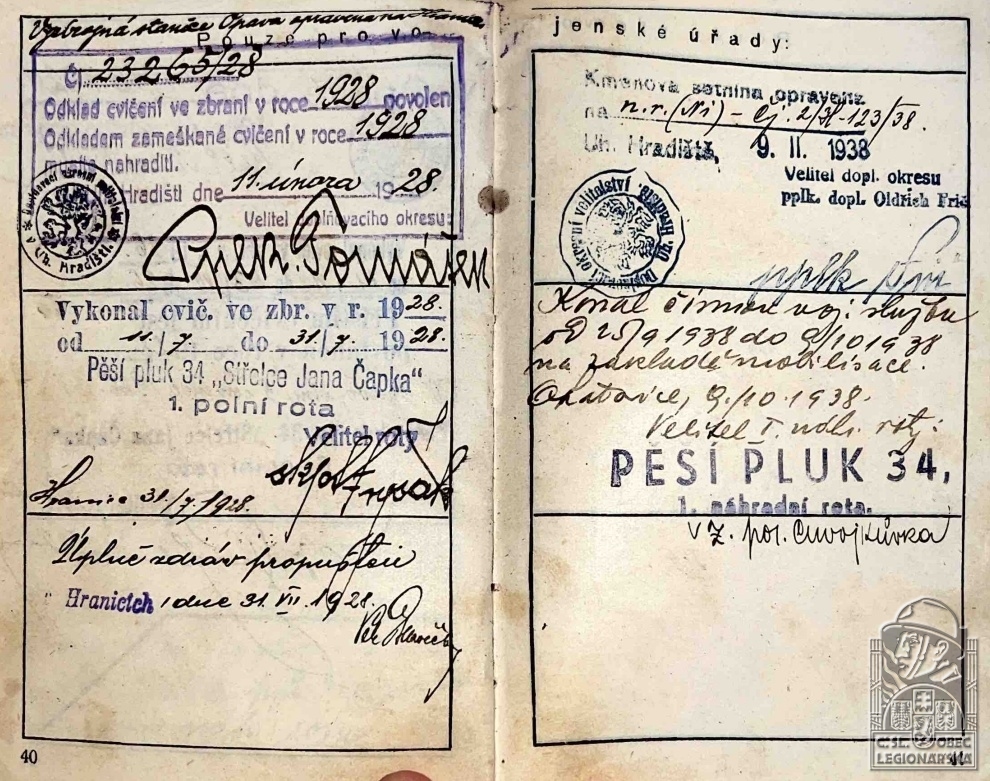 Výzbrojná stanice Opava opravena na Hranice
Pouze pro vo-
Čj. 23265/28
Odklad cvičení ve zbrani v roce 1928 povolen
Odkladem zameškané cvičení v roce 1928
musí nahraditi.
Hradišti dne 11. února 1928.
Velitel doplňovacího okresu:
Uh. Hradišti.
Pplk. Tomášek
Vykonal cvič. ve zbr. v r. 1928.
od 11./7. do 31./7. 1928.
Pěší pluk 34 „Střelce Jana Čapka“
1. polní rota
Velitel roty
Hranice 31./7. 1928.
Úplně zdráv propuštěn
Hranicích, dne 31. VII. 1928.
40
jenské úřady:
Kmenová setnina opravena
na n. r. (Ni) – čj. 2/31-123/38.
Uh. Hradiště, 9. II. 1938
Velitel dopl. okresu
pplk. dopl. Oldřich Frič
Doplňovací okresní velitelství Uh. Hradiště
pplk Frič
Konal činnou voj. službu
od 25/9 1938 do 9/10 1938
na základě mobilisace.
9./10. 1938.
Velitel I. náhr. roty:
PĚŠÍ PLUK 34,
1. náhradní rota.
v z. por.
41
Č. SL. OBEC
LEGIONÁŘSKÁ